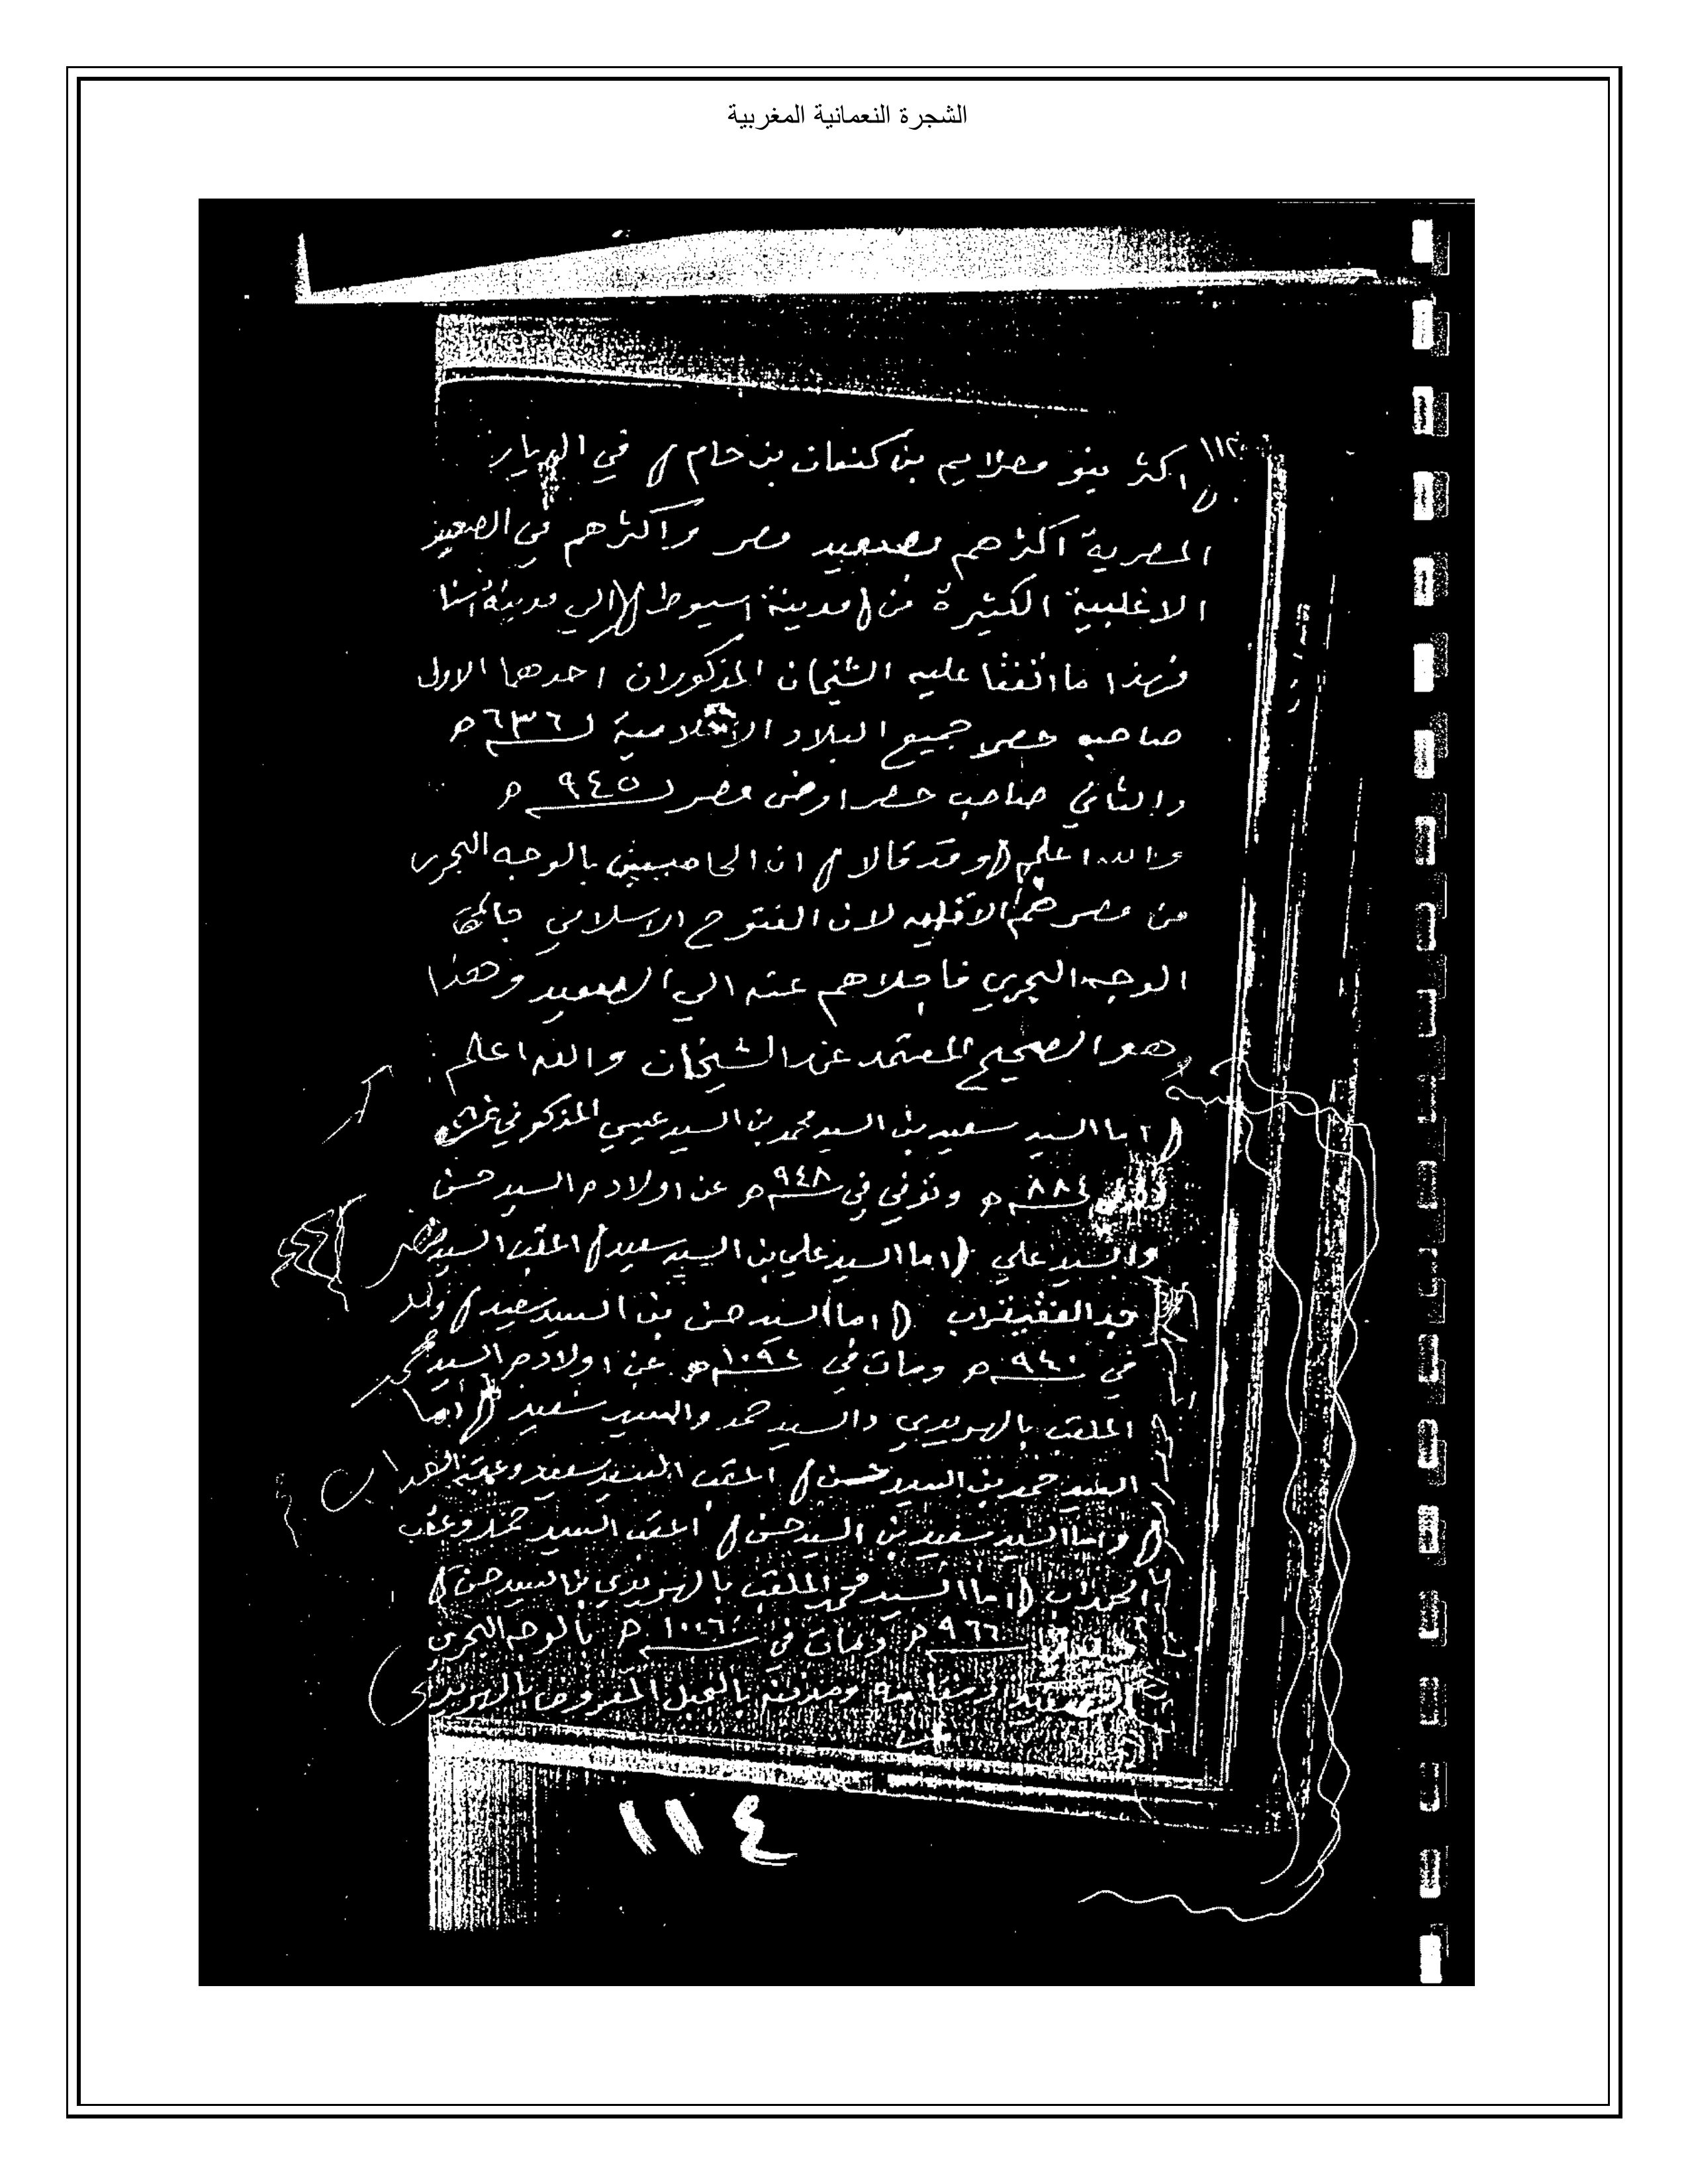 الشجرة النعمانية المغربية
١١٢
اكثر بنو مصلايم بن كنعان بن حام في الديار
المصرية اكثرهم بصعيد مصر واكثرهم في الصعيد
الاغلبية الكثيرة من مدينة اسيوط الي مدينة اسنا
فهذا ما اتفقا عليه الشيخان المذكوران احدهما الاول
صاحب حصر جميع البلاد الاسلامية لـ ٦٣٦ هـ
والثاني صاحب حصر ارض مصر لـ ٩٤٥ هـ
والله اعلم (وقد قالا) ان بالوجه البحري
من مصر هم الاقليه لان الفتوح الاسلامي
الوجه البحري فاجلاهم عنه الي الصعيد وهذا
هو الصحيح المعتمد عند الشيخان والله اعلم
(اما السيد سعيد بن السيد محمد بن السيد عيسي
٨٨٤ هـ وتوفي في ٩٤٨ هـ عن اولاده السيد حسن
والسيد علي (اما السيد علي بن السيد سعيد) اعقب السيد
جد (اما السيد حسن بن السيد سعيد) ولد
في ٩٤٠ هـ ومات في ١٠٩٤ هـ عن اولاده السيد محمد
الملقب بالهريدي والسيد حمد والسيد سعيد (اما
السيد حمد بن السيد حسن) اعقب السيد سعيد وعقبه
(واما السيد سعيد بن السيد حسن) اعقب السيد حمد وعقب
(اما السيد محمد الملقب بالهريدي بن السيد حسن)
٩٦٦ هـ ومات في ١٠٠٦ هـ بالوجه البحري
ومقامه ومدفنه بالجبل المعروف بالهريدي
١١٤